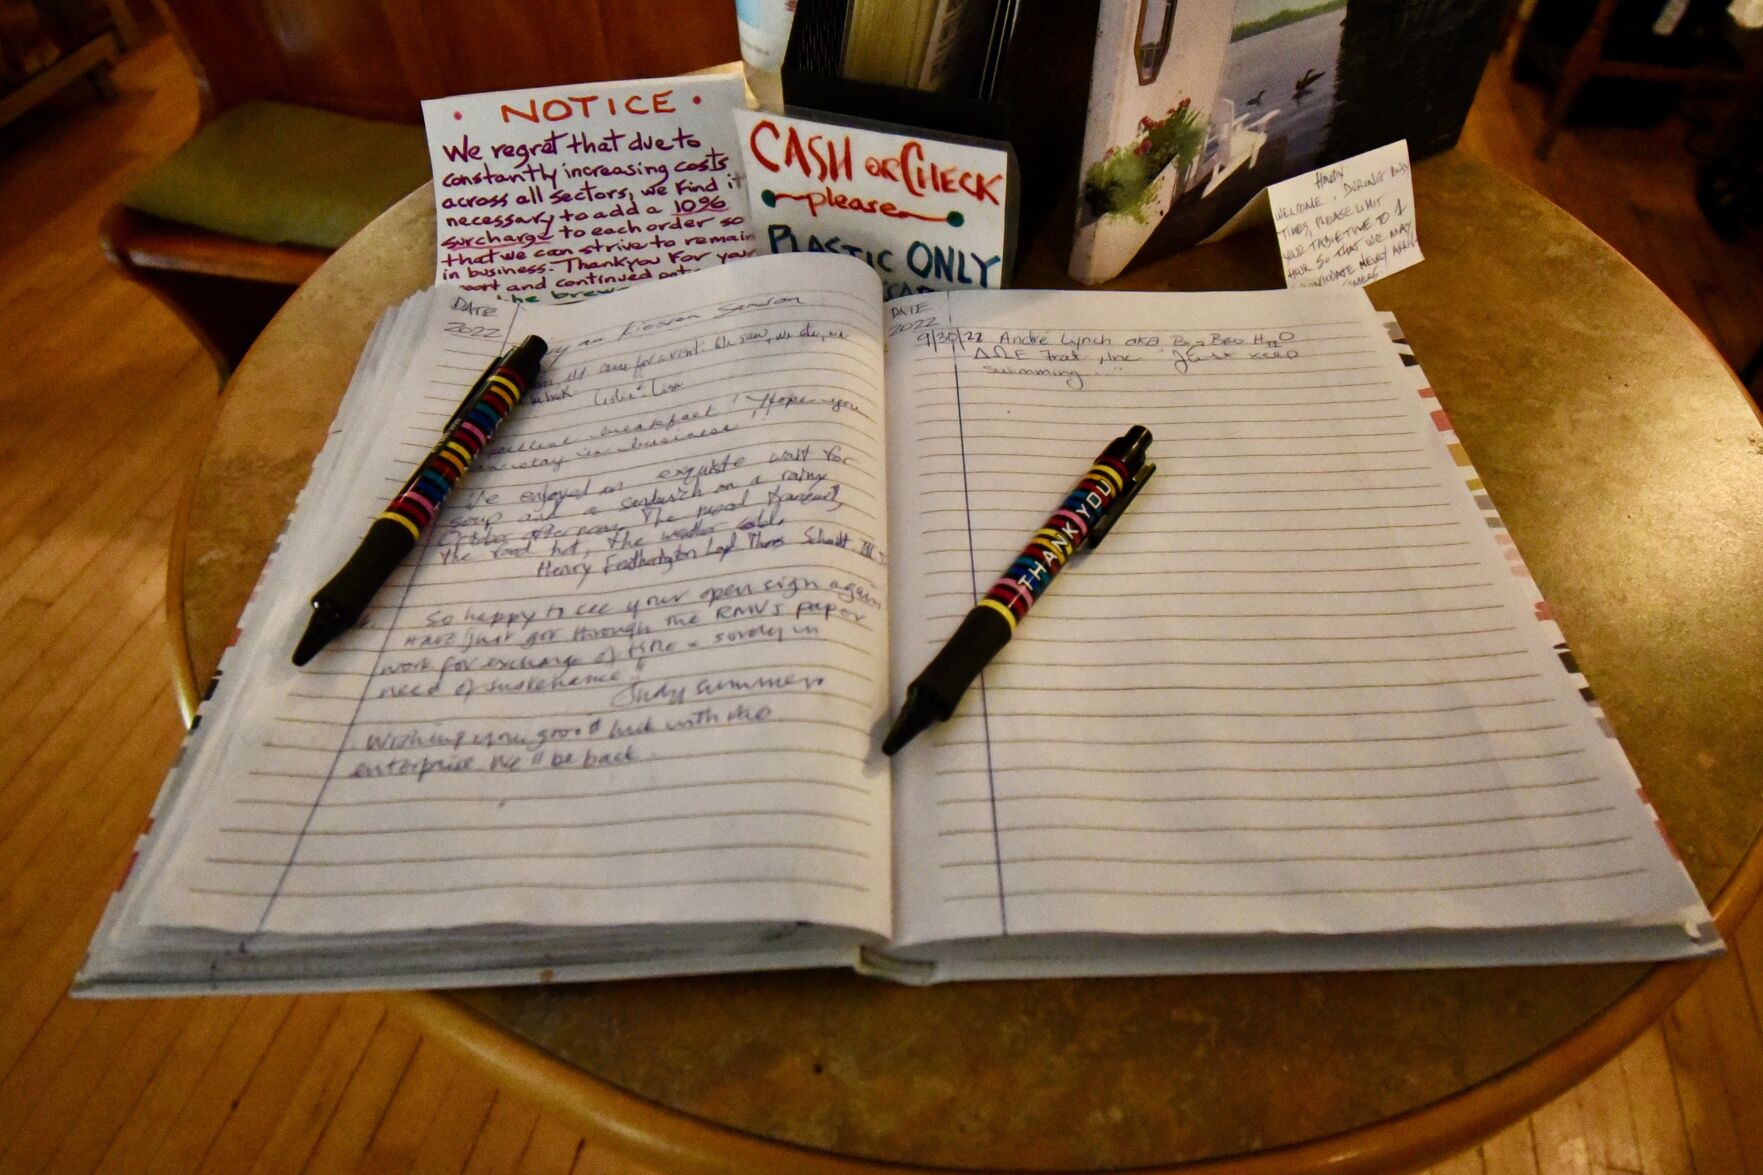 NOTICE
We regret that due to
constantly increasing costs
across all sectors, we find it
necessary to add a 10%
surcharge to each order so
that we can strive to remain
in business. Thankyou for your
and continued
the
CASH OR CHECK
please
PLASTIC ONLY
WELCOME! DURING
TIMES, PLEASE LIMIT
YOUR TABLE TIME TO 1
HOUR SO THAT WE MAY
NEWLY
DATE
2022
came for a visit. We saw, we ate, we
back Leslie & Lisa
breakfast! Hope you
stay in business!!
We enjoyed an exquisite wait for
soup and a sandwich on a rainy
October afternoon. The mood tranquil,
the food hot, the weather cold.
Henry Featherington Thos. Schmidt, III
So happy to see your open sign again
just got through the RMV's paper
work for exchange of title - sorely in
need of sustenance"
Judy Summers
Wishing you good luck with the
enterprise. We'll be back.
DATE
2022
9/30/22 André Lynch aka Big Bro H₂O
ΔΩΕ Frat, Inc. "Just keep
swimming..."
THANK YOU!